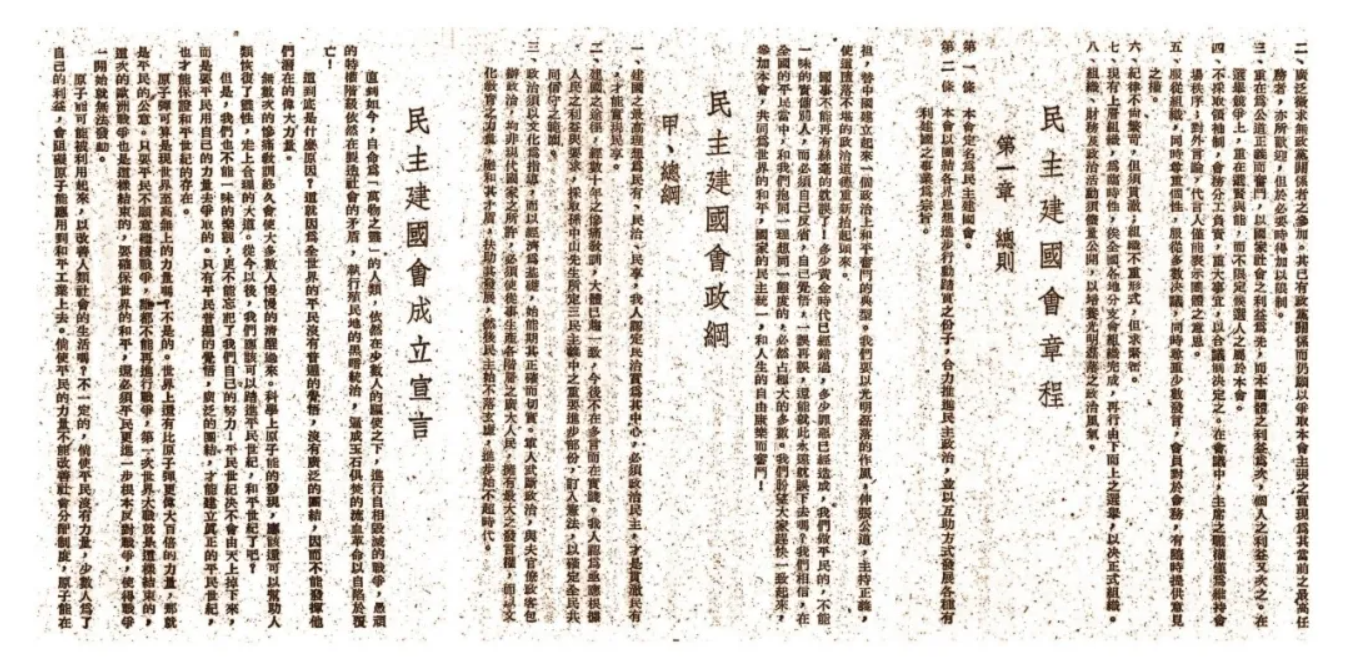 二、廣泛徵求無政黨關係者之參加。其已有政黨關係而仍願以爭取本會主張之實現爲其當前之最高任
務者,亦所歡迎,但於必要時得加以限制。
三、重在爲公道正義而奮鬥,以國家社會之利益爲先,而本團體之利益爲次,個人之利益又次之。在
選舉競爭上,重在選賢與能,而不限定候選人之屬於本會。
四、不採取領袖制,會務分工負責,重大事宜,以合議制決定之。在會議中,主席之職權僅爲維持會
場秩序;對外言論,代言人僅能表示團體之意思。
五、服從組織,同時尊重個性,服從多數決議,同時尊重少數發言,會員對於會務,有隨時提供意見
之權。
六、紀律不尚繁苛,但須貫徹,組織不重形式,但求緊密。
七、現有上層組織,爲臨時性,俟全國各地分支會組織完成,再行由下而上之選舉,以決正式組織。
八、組織、財務及政治活動須儘量公開,以培養光明磊落之政治風氣。
民主建國會章程
第一章 總則
第一條 本會定名爲民主建國會。
第二條 本會以團結各界思想進步行動踏實之份子,合力推進民主政治,並以互助方式發展各種有
利建國之事業爲宗旨。
擔,替中國建立起來一個政治上和平奮鬥的典型。我們要以光明磊落的作風,伸張公道,主持正義,
使這墮落不堪的政治道德重新抬起頭來。
國事不能再有絲毫的就誤了!多少黃金時代已經錯過,多少罪惡已經造成,我們做平民的,不能
一味的責備別人,而必須自己反省,自己覺悟,一誤再誤,還能就此永遠就誤下去嗎?我們相信,在
全國的平民當中,和我們抱同一理想同一態度的,必然占極大的多數。我們盼望大家趕快一致起來,
參加本會,共同爲世界的和平,國家的民主統一,和人生的自由康樂而奮鬥!
民主建國會政綱
甲、總綱
一、建國之最高理想爲民有、民治、民享,我人認定民治實爲其中心,必須政治民主,才是貫澈民有
,才能實現民享。
二、建國之途徑,經數十年之慘痛教訓,大體已趨一致,今後不在多言而在實踐。我人認爲亟應根據
人民之利益與要求,採取孫中山先生所定三民主義中之重要進步部份,訂入憲法,以確定全民共
同信守之範圍。
三、政治須以文化爲指導,而以經濟爲基礎,始能期其正確而切實。軍人武斷政治,與夫官僚政客包
辦政治,均非現代國家之所許,必須使從事生產各階層之廣大人民,擁有最大之發言權,而以文
化教育之力量,融和其矛盾,扶助其發展,然後民主始不落空虛,進步始不超時代。
民主建國會成立宣言
直到如今,自命爲「萬物之靈」的人類,依然在少數人的驅使之下,進行自相毀滅的戰爭,愚頑
的特權階級依然在製造社會的矛盾,執行殖民地的黑暗統治,逼成玉石俱焚的流血革命以自陷於覆
亡!
這到底是什麼原因?這就因爲全世界的平民沒有普遍的覺悟,沒有廣泛的團結,因而不能發揮他
們潛在的偉大力量。
無數次的慘痛教訓終久會使大多數人慢慢的清醒過來。科學上原子能的發現,應該還可以幫助人
類恢復了體性,走上合理的大道。從今以後,我們應該可以踏進平民世紀,和平世紀了吧?
但是,我們也不能一味的樂觀,更不能忘記了我們自己的努力!平民世紀決不會由天上掉下來,
而是要平民用自己的力量去爭取的。只有平民普遍的覺悟,廣泛的團結,才能建立眞正的平民世紀,
也才能保證和平世紀的存在。
原子彈可算是現世界至高無上的力量嗎?不是的。世界上還有比原子彈更偉大百倍的力量,那就
是平民的公意。只要平民不願意繼續戰爭,誰都不能再進行戰爭,第一次世界大戰就是這樣結束的,
這次的歐洲戰爭也是這樣結束的,要確保世界的和平,還必須平民更進一步根本反對戰爭,使得戰爭
一開始就無法發動。
原子能可能被利用起來,以改善人類社會的生活嗎?不一定的,倘使平民沒有力量,少數人爲了
自己的利益,會阻礙原子能應用到和平工業上去。倘使平民的力量不能改善社會分配制度,原子能在